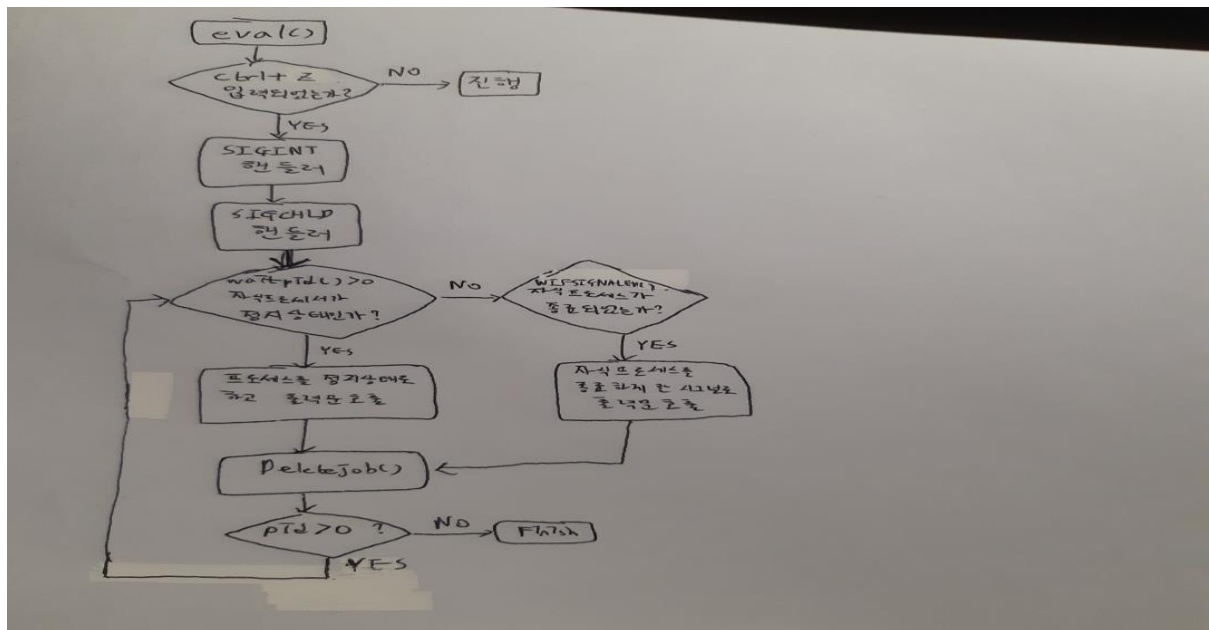 eval()
Ctrl+ Z
입력되었는가?
NO
진행
YES
SIGINT
핸들러
SIGCHLD
핸들러
waitpid()>0
자식프로세서가
정지상태인가?
NO
WIFSIGNALED()
자식프로세스가
종료되었는가?
YES
YES
프로세스를 정지상태로
하고 출력문호출
자식프로세스를
종료하게 한 시그널로
출력문호출
Deletejob()
pid>0 ?
NO
Finish
YES